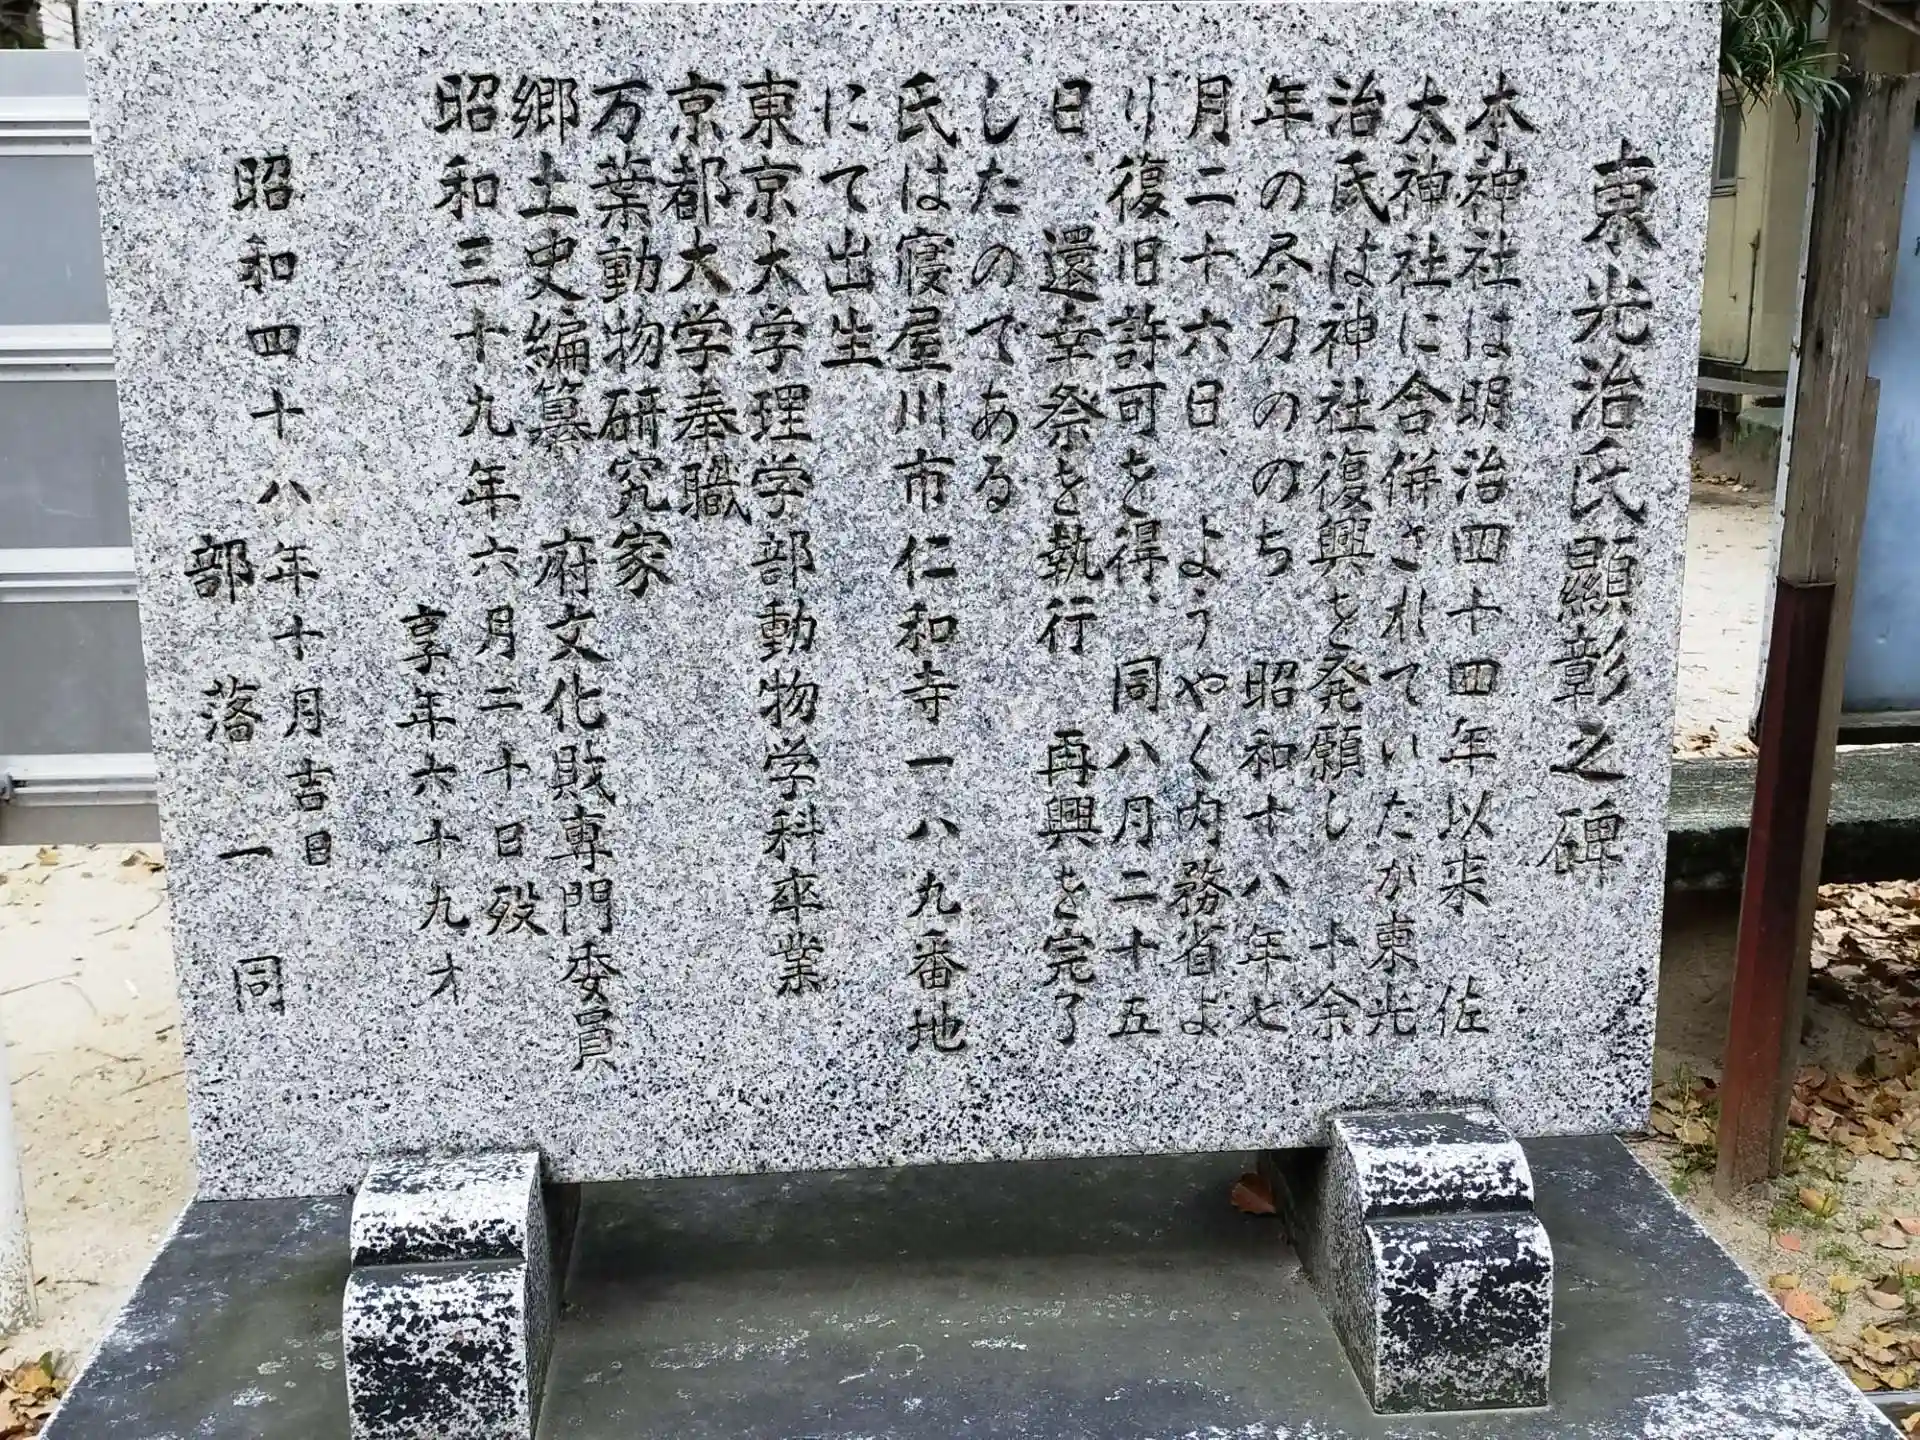 東光治氏顯彰之碑
本神社は明治四十四年以来 佐
太神社に合併されていたが東光
治氏は神社復興を発願し 十余
年の尽力ののち、昭和十八年七
月二十六日、ようやく内務省よ
り復旧許可を得、同八月二十五
日、還幸祭を執行 再興を完了
したのである
氏は寝屋川市仁和寺一八九番地
にて出生
東京大学理学部動物学科卒業
京都大学奉職
万葉動物研究家
郷土史編纂 府文化財専門委員
昭和三十九年六月三十日歿
享年六十九才
昭和四十八年十月吉日
部落一同